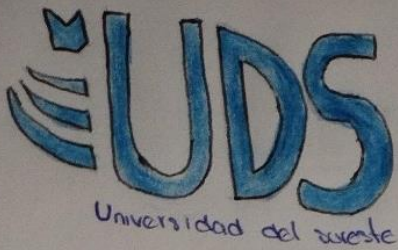 UDS
Universidad del sureste